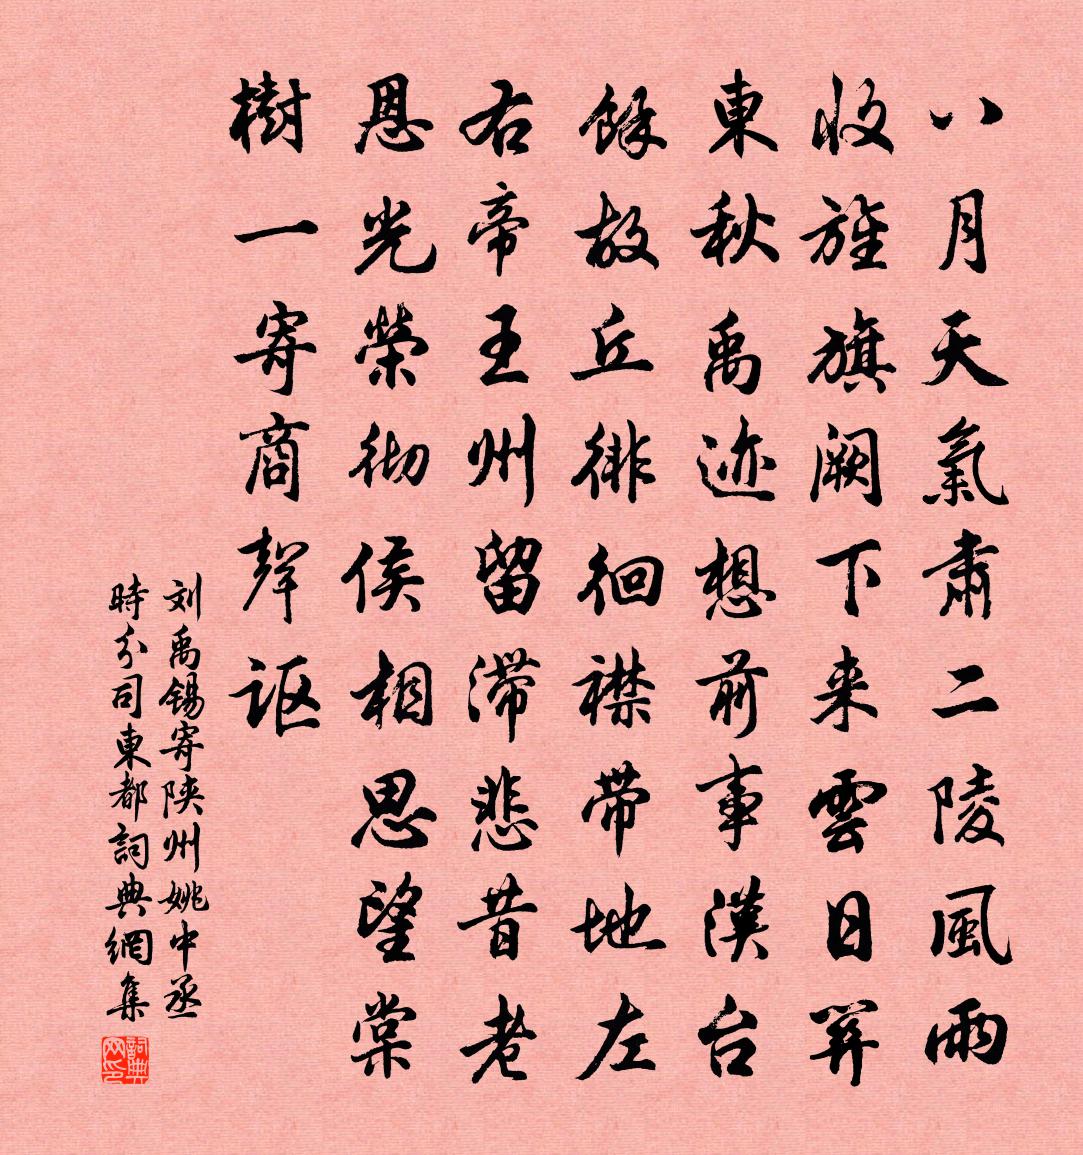 八月天氣肅二陵風雨
收旌旗闕下来雲日關
東秋禹迹想前事漢台
餘故丘徘徊襟帶地左
右帝王州留滯悲昔老
恩光榮彻侯相思望棠
樹一寄商聲讴
刘禹锡寄陕州姚中丞
時分司東都詞典網集
詞典网印